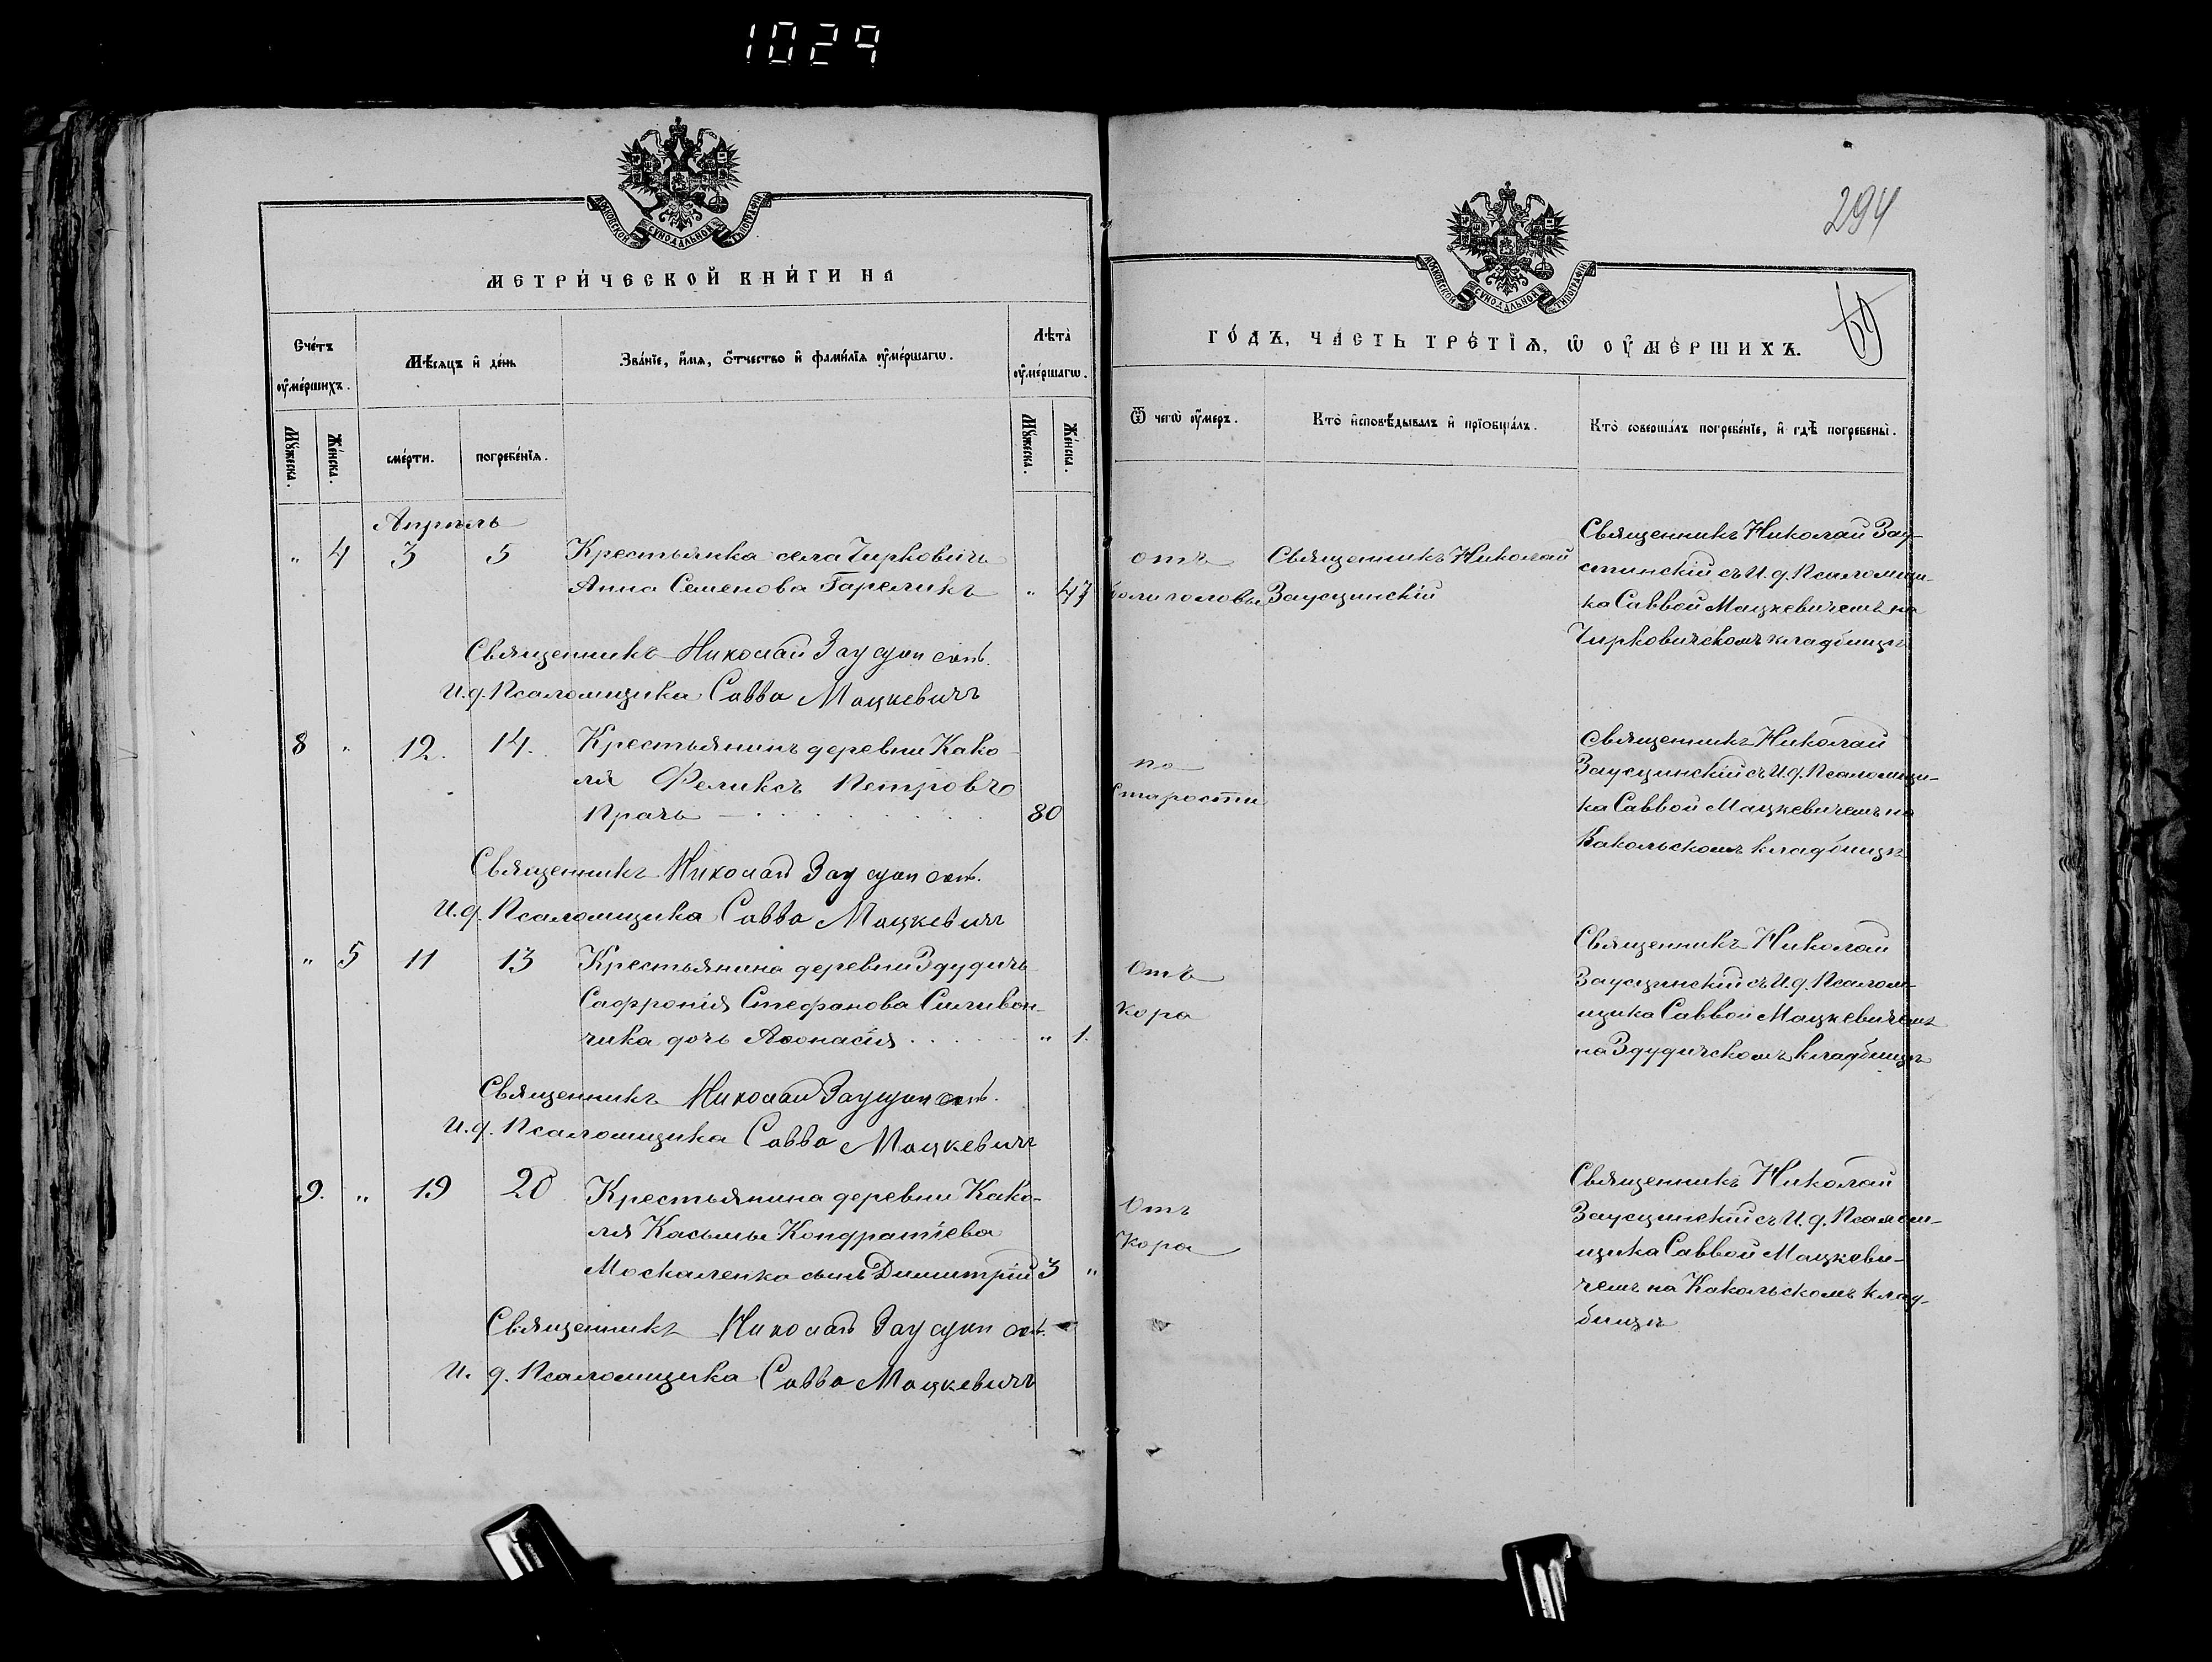 1029
МОСКОВСКОЙ СѴНОДАЛЬНОЙ ТИПОГРАФІИ
МЕТРИ́ЧЕСКОЙ КНИ́ГИ НА
Сче́тъ ᲂу҆ме́ршихъ.
Мѣ́сяцъ и҆ де́нь
Зва́нїе, и҆́мѧ, ѻ҆́тчество и҆ фами́лїѧ ᲂу҆ме́ршагѡ.
Лѣ́та ᲂу҆ме́ршагѡ.
Мꙋ́жеска.
Же́нска.
сме́рти.
погребе́нїѧ.
Мꙋ́жеска.
Же́нска.
Апрѣль
" 4 3 5 Крестьянка села Чирковичъ
Анна Семенова Гареликъ " 47
Священникъ Николай Заусцинскій.
И. д. Псаломщика Савва Мацкевичъ
8 " 12. 14. Крестьянинъ деревни Како-
ля Феликсъ Петровъ
Прачъ 80
Священникъ Николай Заусцинскій.
И. д. Псаломщика Савва Мацкевичъ
" 5 11 13 Крестьянина деревни Здудичъ
Сафронія Стефанова Силивон-
чика дочь Аѳонасія " 1.
Священникъ Николай Заусцинскій.
И. д. Псаломщика Савва Мацкевичъ
9. " 19 20 Крестьянина деревни Како-
ля Касьмы Кондратіева
Москаленко сынъ Димитрій 3 "
Священникъ Николай Заусцинскій.
И. д. Псаломщика Савва Мацкевичъ
294
69
МОСКОВСКОЙ СѴНОДАЛЬНОЙ ТИПОГРАФІИ
ГО́ДЪ, ЧА́СТЬ ТРЕ́ТЇѦ, Ѡ҆ ОУ҆МЕ́РШИХЪ.
Ѿ чегѡ̀ ᲂу҆́меръ.
Кто̀ и҆сповѣ́дывалъ и҆ прїѻбща́лъ.
Кто̀ соверша́лъ погребе́нїе, и҆ гдѣ̀ погребены̀.
отъ
боли головы
Священникъ Николай
Заусцинскій
Священникъ Николай Зау-
сцинскій съ И. д. Псаломщи-
ка Саввой Мацкевичемъ на
Чирковичскомъ кладбищѣ
по
старости
Священникъ Николай
Заусцинскій съ И. д. Псаломщи-
ка Саввой Мацкевичемъ на
Какольскомъ кладбищѣ
Отъ
кора
Священникъ Николай
Заусцинскій съ И. д. Псалом-
щика Саввой Мацкевичемъ
на Здудичскомъ кладбищѣ
Отъ
кора
Священникъ Николай
Заусцинскій съ И. д. Псалом-
щика Саввой Мацкеви-
чемъ на Какольскомъ клад-
бищѣ